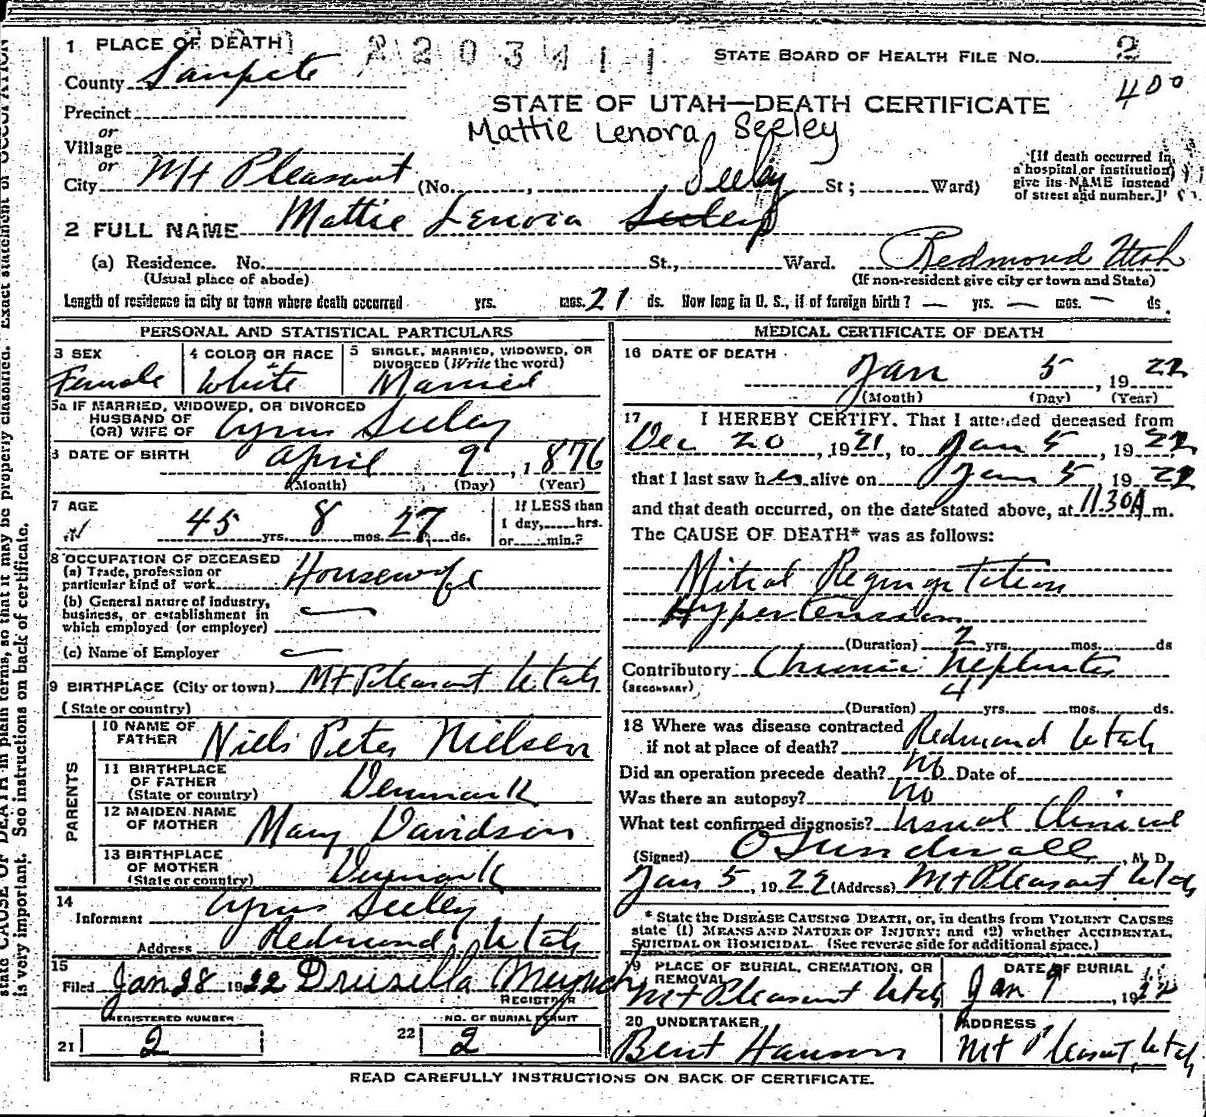 1 PLACE OF DEATH
2203411
STATE BOARD OF HEALTH FILE NO. 2
County Sanpete
400
Precinct
STATE OF UTAH—DEATH CERTIFICATE
or
Mattie Lenora Seeley
Village
or
City Mt Pleasant (No. , Seeley St; Ward)
[If death occurred in
a hospital or institution
give its NAME instead
of street and number.]
2 FULL NAME Mattie Lenora Seeley
(a) Residence. No. St., Ward. Redmond Utah
(Usual place of abode) (If non-resident give city or town and State)
Length of residence in city or town where death occurred yrs. mos. 21 ds. How long in U. S., if of foreign birth? — yrs. — mos. — ds.
PERSONAL AND STATISTICAL PARTICULARS
3 SEX
Female
4 COLOR OR RACE
White
5 SINGLE, MARRIED, WIDOWED, OR
DIVORCED (Write the word)
Married
5a IF MARRIED, WIDOWED, OR DIVORCED
HUSBAND OF
(OR) WIFE OF Cyrus Seeley
6 DATE OF BIRTH April 9, 1876
(Month) (Day) (Year)
7 AGE
45 yrs. 8 mos. 27 ds.
If LESS than
1 day, hrs.
or min.?
8 OCCUPATION OF DECEASED
(a) Trade, profession or
particular kind of work Housewife
(b) General nature of industry,
business, or establishment in
which employed (or employer)
(c) Name of Employer
9 BIRTHPLACE (City or town) Mt Pleasant Utah
(State or country)
PARENTS
10 NAME OF
FATHER Niels Peter Nielsen
11 BIRTHPLACE
OF FATHER
(State or country) Denmark
12 MAIDEN NAME
OF MOTHER Mary Davidson
13 BIRTHPLACE
OF MOTHER
(State or country) Denmark
14
Informant Cyrus Seeley
Address Redmond Utah
15
Filed Jan 28 1922 Drusilla
REGISTRAR
REGISTERED NUMBER
21 2
NO. OF BURIAL PERMIT
22 2
MEDICAL CERTIFICATE OF DEATH
16 DATE OF DEATH
Jan 5, 1922
(Month) (Day) (Year)
17 I HEREBY CERTIFY, That I attended deceased from
Dec 20, 1921, to Jan 5, 1922
that I last saw her alive on Jan 5, 1922
and that death occurred, on the date stated above, at 11.30A m.
The CAUSE OF DEATH* was as follows:
Mitral Regurgitation
Hypertension
(Duration) 2 yrs. mos. ds
Contributory Chronic Nephritis
(SECONDARY) 4
(Duration) yrs. mos. ds.
18 Where was disease contracted
if not at place of death? Redmond Utah
Did an operation precede death? No Date of
Was there an autopsy? No
What test confirmed diagnosis? Usual Clinical
(Signed) O Sundwall, M. D.
Jan 5, 1922 (Address) Mt Pleasant Utah
* State the DISEASE CAUSING DEATH, or, in deaths from VIOLENT CAUSES
state (1) MEANS AND NATURE OF INJURY; and (2) whether ACCIDENTAL,
SUICIDAL OR HOMICIDAL. (See reverse side for additional space.)
19 PLACE OF BURIAL, CREMATION, OR
REMOVAL
Mt Pleasant Utah
DATE OF BURIAL
Jan 1922
20 UNDERTAKER
Bent Hansen
ADDRESS
Mt Pleasant, Utah
READ CAREFULLY INSTRUCTIONS ON BACK OF CERTIFICATE.
state CAUSE OF DEATH in plain terms, so that it may be properly classified. Exact statement of OCCUPATION
is very important. See instructions on back of certificate.